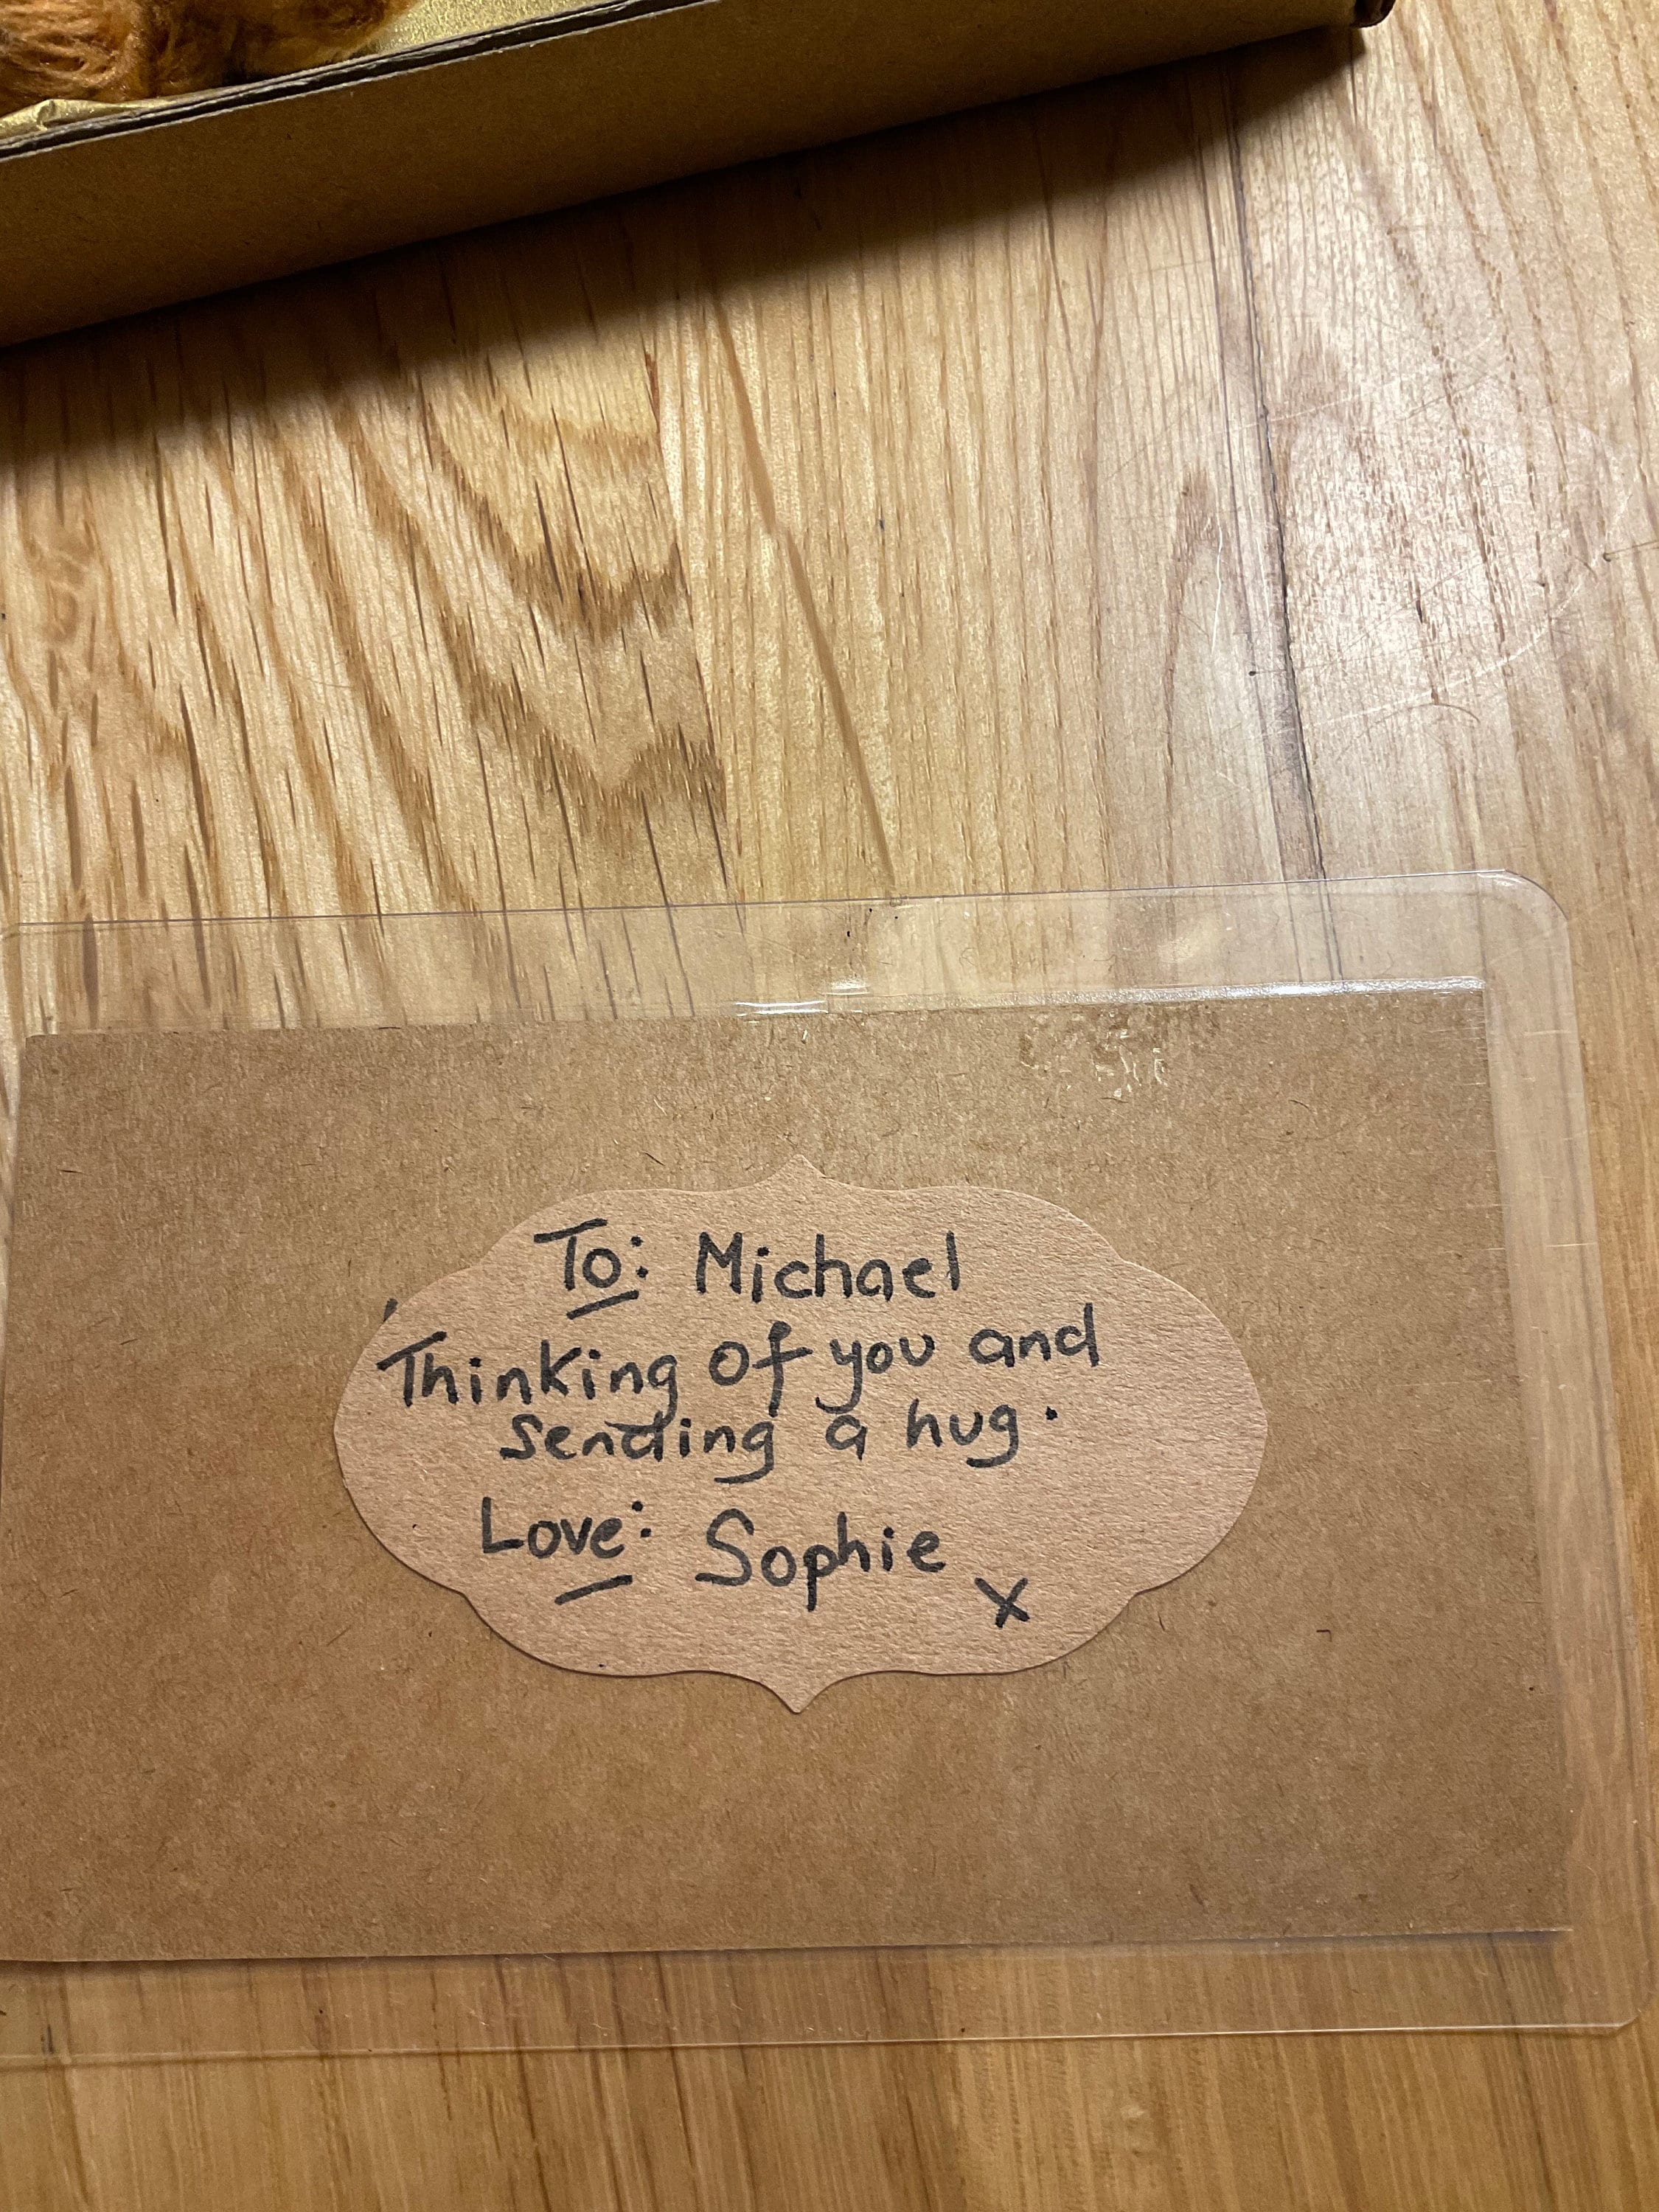 To: Michael
Thinking of you and
sending a hug.
Love: Sophie
x